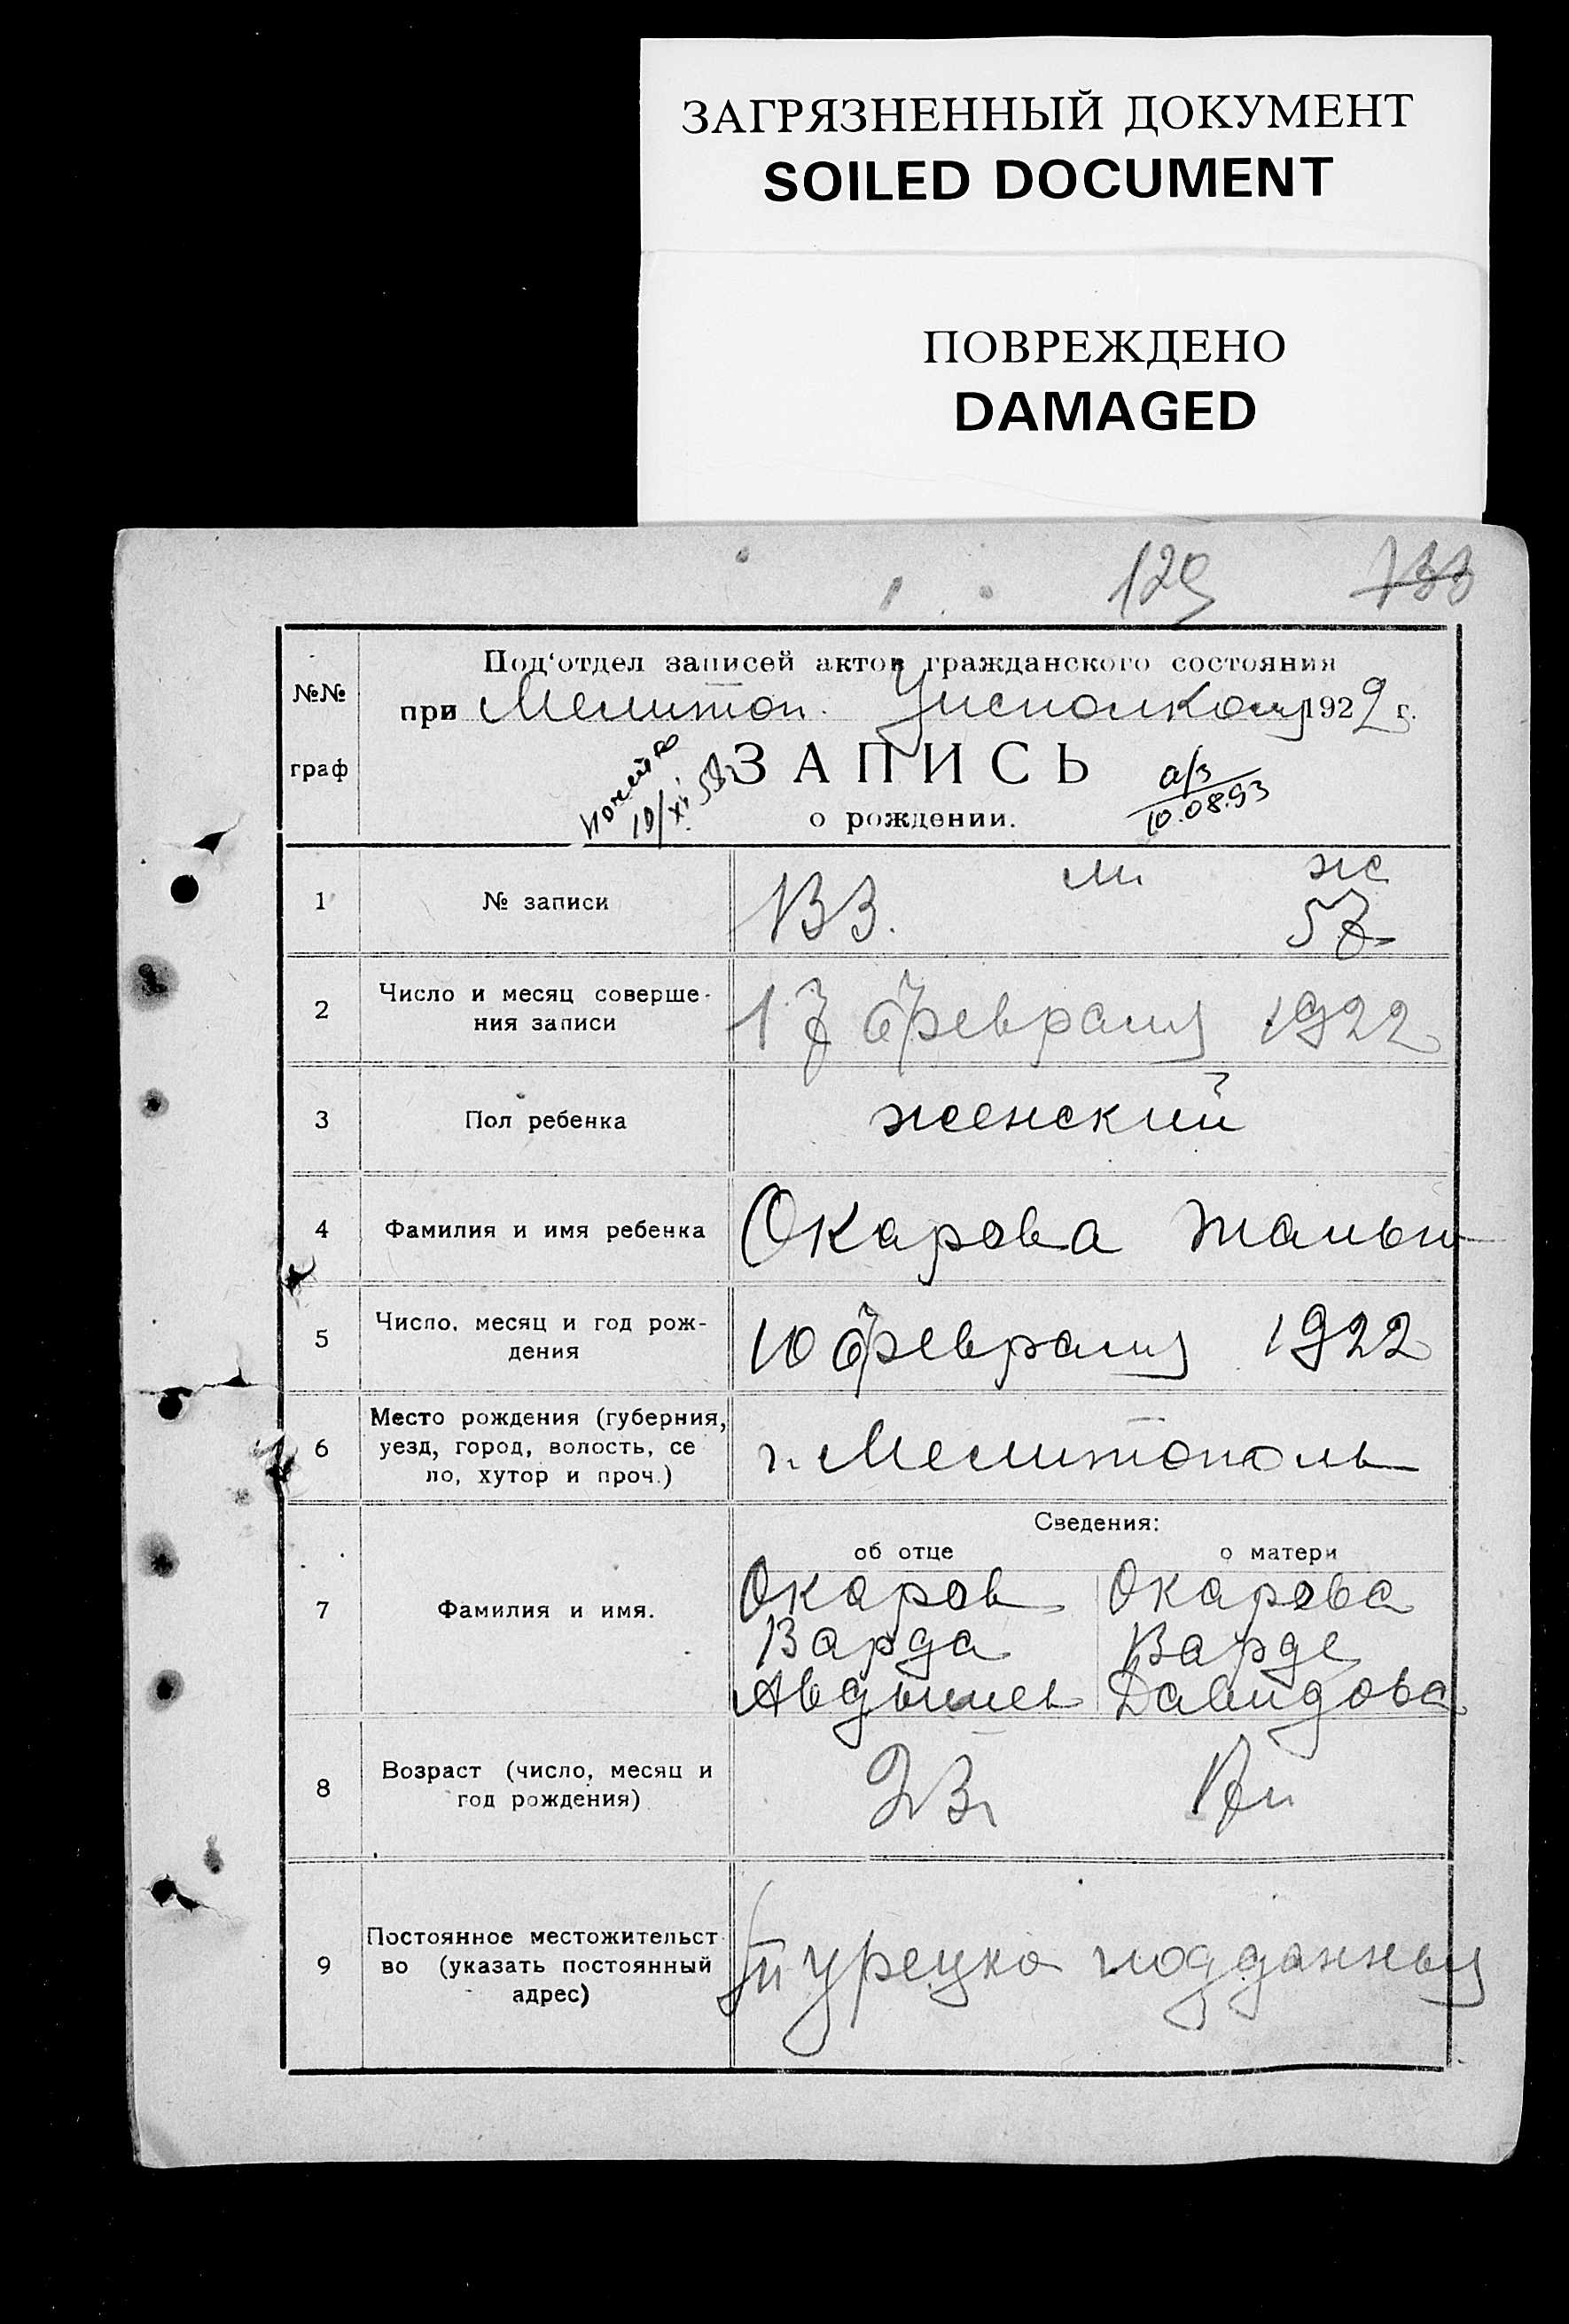 ЗАГРЯЗНЕННЫЙ ДОКУМЕНТ
SOILED DOCUMENT
ПОВРЕЖДЕНО
DAMAGED
129 733
Под‘отдел записей актов гражданского состояния
№№
при Мелитоп. Уисполкому 1922 г.
граф
ЗАПИСЬ
10/XI 58
а/з
10.08.93
о рождении.
м ж
1 № записи 133. 57
2 Число и месяц соверше-
ния записи
17 февраля 1922
3 Пол ребенка женский
4 Фамилия и имя ребенка Окарова
5 Число, месяц и год рож-
дения
10 февраля 1922
6 Место рождения (губерния,
уезд, город, волость, се
ло, хутор и проч.)
г. Мелитополь
Сведения:
об отце о матери
7 Фамилия и имя.
Окаров Окарова
Варда Варде
Авдышев Давидова
8 Возраст (число, месяц и
год рождения)
9 Постоянное местожительст
во (указать постоянный
адрес)
турецко подданный